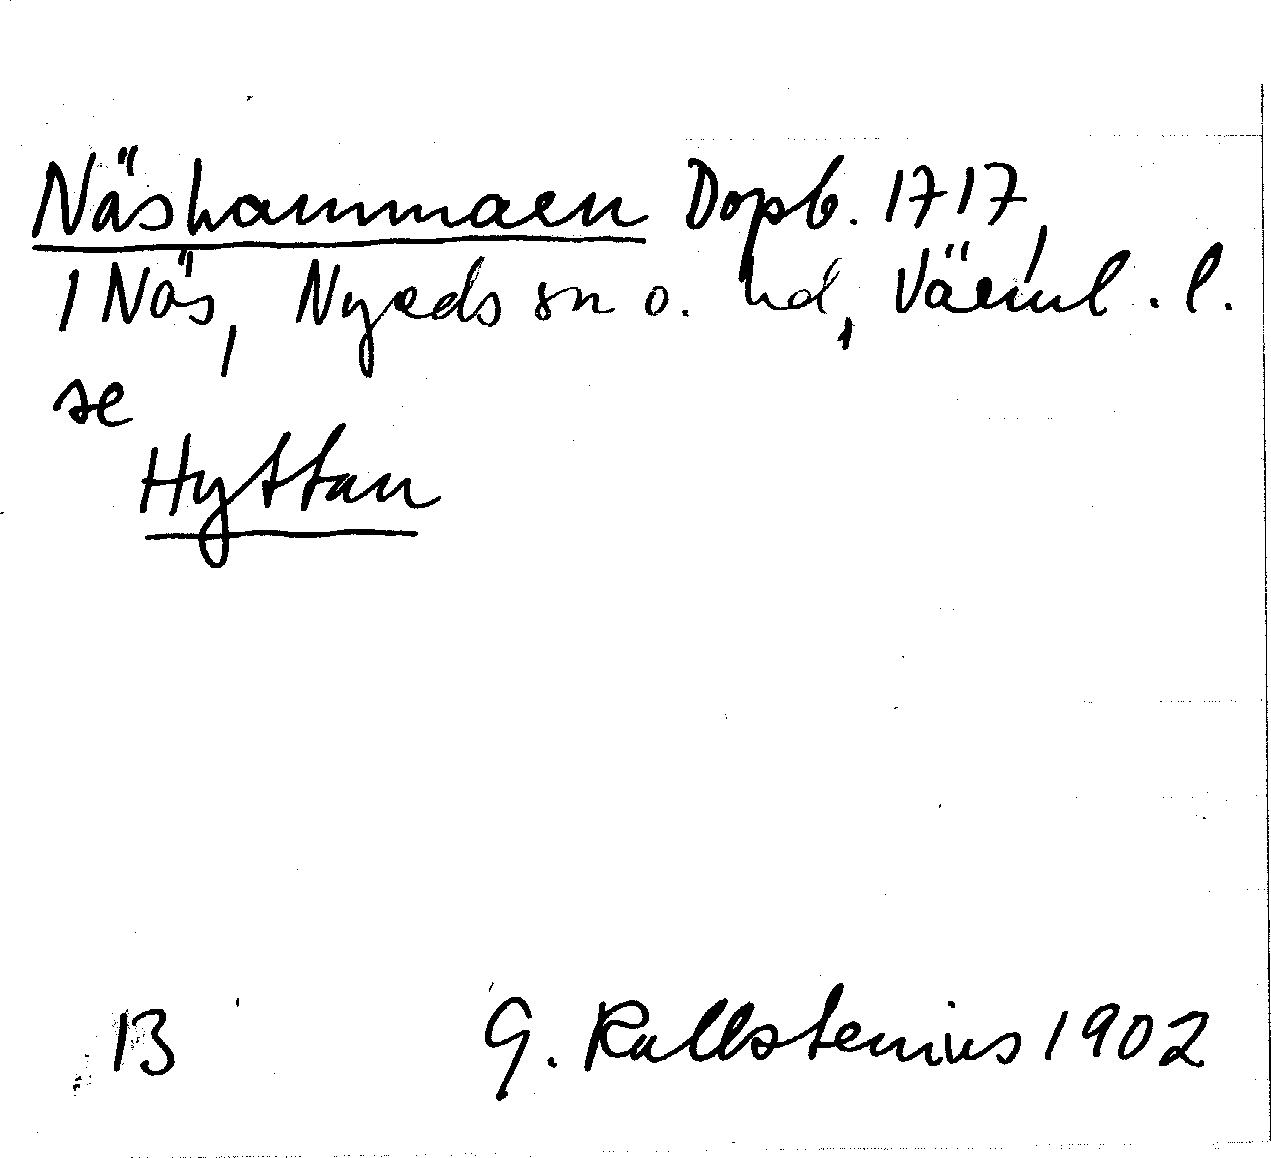 Näshammaren Dopb. 1717,
1 Näs, Nyeds sn o. hd, Värml. l.
se
Hyttan
13 G. Kallstenius 1902